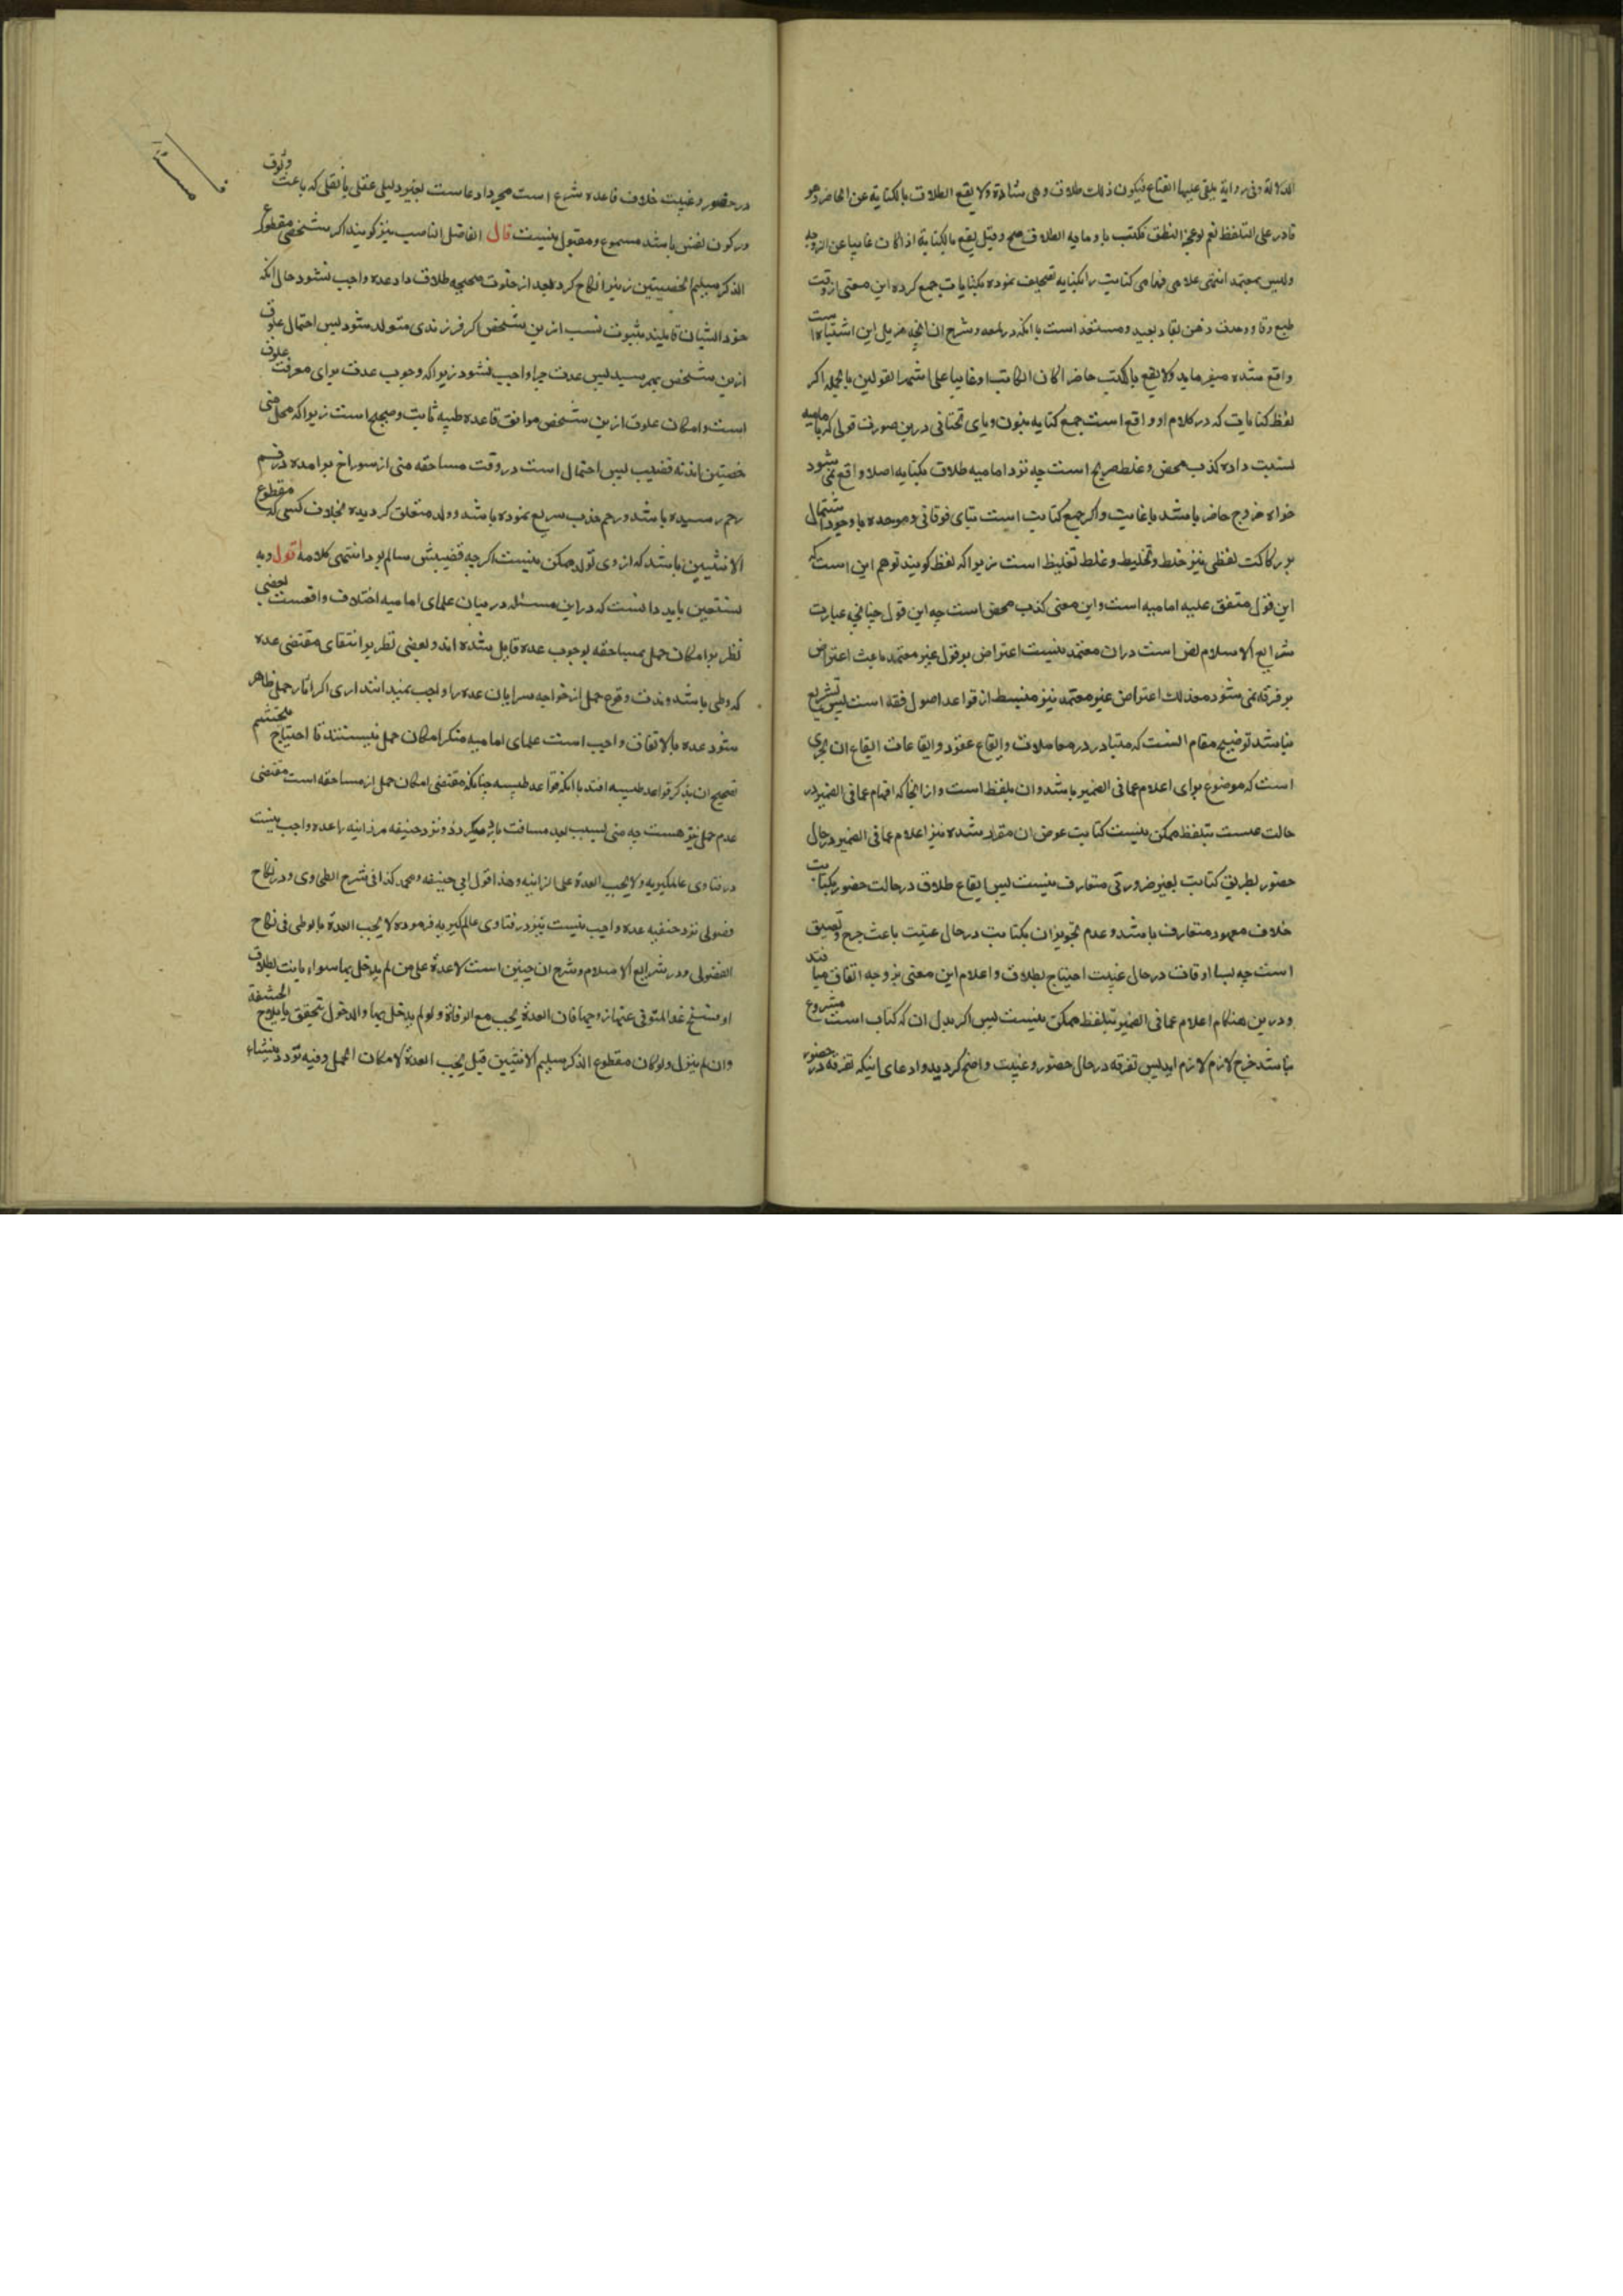 الدلالة وفی روایة یلقی علیها القناع فیکون ذلك طلاق وهی شاذة ولا یقع الطلاق بالکتابة عن الحاضر وهو
قادر علی التلفظ نعم لو عجز النطق فکتب ناویا به الطلاق صح وقیل یقع بالکتابة اذا کان غایبا عن الزوجه
ولیس بمعتمد انتهی علامی فهامی کتابت را بکنایه تصحیف نموده بکنایات جمع کرده این معنی از دقت
طبع وقاد وحدت ذهن نقاد بعید ومستبعد است با انکه در لمعه وشرح ان انچه مزیل این اشتباه است
واقع شده میفرماید ولا یقع بالکتب حاضرا کان الکاتب او غایبا علی اشهر القولین بالجمله اکر
لفظ کنایات که در کلام او واقع است جمع کنایه بنون ویای تحتانی درین صورت قولی که بامامیه
نسبت داده کذب محض وغلط صریح است چه نزد امامیه طلاق بکنایه اصلا واقع نمی شود
خواه زوج حاضر باشد یا غایب واکر جمع کتابت است بتای فوقانی وموحده با وجود اشتمال
بر رکاکت لفظی نیز خلط وتخلیط وغلط تغلیظ است زیرا که لفظ کویند توهم این است که
این قول متفق علیه امامیه است واین معنی کذب محض است چه این قول چنانچه عبارت
شرایع الاسلام نص است دران معتمد نیست اعتراض بر قول غیر معتمد باعث اعتراض
بر فرقه نمی شود معذلك اعتراض غیر معتمد نیز منبسط از قواعد اصول فقه است پس تشریع
نباشد توضیح مقام انست که متبادر در معاملات وایقاع عقود وایقاعات ایقاع ان بلفظی
است که موضوع برای اعلام عما فی الضمیر باشد وان بلفظ است وازانجا که افهام عما فی الضمیر در
حالت غیبت بتلفظ ممکن نیست کتابت عوض ان مقرر شده نیز اعلام عما فی الضمیر در حال
حضور بطریق کتابت بغیر ضرورتی متعارف نیست پس ایقاع طلاق در حالت حضور بکتابت
خلاف معهود متعارف باشد وعدم تجویز ان بکتابت در حال غیبت باعث حرج وتضیق
است چه بسا اوقات در حال غیبت احتیاج بطلاق واعلام این معنی بزوجه اتفاق میافتد
ودرین هنکام اعلام عما فی الضمیر بتلفظ ممکن نیست پس اکر بدل ان که کتاب است مشروع
نباشد حرج لازم لازم اید پس تفرقه در حال حضور وغیبت واضح کردید وادعای اینکه تفرقه در حضور
در حضور وغیبت خلاف قاعده شرع است مجرد ادعاست بغیر دلیلی عقلی یا نقلی که باعث وثوق
ورکون نفس باشد مسموع ومقبول نیست قال الفاضل الناصب نیز کویند اکر شخصی مقطوع
الذکر سلیم الخصیتین زنیرا نکاح کرد بعد از خلوت صحیحه طلاق داد عده واجب نشود حال انکه
خود ایشان قایلند بثبوت نسب ازین شخص اکر فرزندی متولد شود پس احتمال علوق
ازین شخص بهم رسید پس عدت چرا واجب نشود زیرا که وجوب عدت برای معرفت علوق
است وامکان علوق ازین شخص موافق قاعده طبیه ثابت وصحیح است زیرا که محل منی
خصیتین اند نه قضیب پس احتمال است در وقت مساحقه منی از سوراخ برامده در فم
رحم رسیده باشد ورحم جذب سریع نموده باشد وولد متخلق کردیده بخلاف کسی که مقطوع
الانثیین باشد که ازوی تولد ممکن نیست اکرچه قضیبش سالم بود انتهی کلامه اقول وبه
نستعین باید دانست که دراین مسئله درمیان علمای امامیه اختلاف واقعست بعضی
نظر بر امکان حمل بمساحقه بوجوب عده قایل شده اند وبعضی نظر بر انتفای مقتضی عده
که وطی باشد وندرت وقوع حمل از خواجه سرایان عده را واجب نمیدانند اری اکر اثار حمل ظاهر
شود عده بالاتفاق واجب است علمای امامیه منکر امکان حمل نیستند تا احتیاج بتجشم
تصحیح ان بذکر قواعد طبیه افتد با انکه قواعد طبیه چنانکه مقتضی امکان حمل از مساحقه است مقتضی
عدم حمل نیز هست چه منی بسبب بعد مسافت بارد میکردد ونزد حنیفه مر زانیه را عده واجب نیست
در فتاوی عالمکیریه ولا یجب العدة علی الزانیه وهذا قول ابی حنیفه ومحمد کذا فی شرح الطحاوی ودر نکاح
فضولی نزد حنفیه عده واجب نیست نیز در فتاوی عالمکیریه فرموده لا یجب العدة بالوطی فی نکاح
الفضولی ودر شرایع الاسلام وشرح ان چنین است لا عدة علی من لم یدخل بها سواء بانت بطلاق
او فسخ عدا المتوفی عنها زوجها فان العدة یجب مع الوفاة ولو لم یدخل بها والدخول یتحقق بایلاج الحشفة
وان لم ینزل ولو کان مقطوع الذکر سلیم الانثیین قیل یجب العدة لامکان الحمل وفیه تردد منشاء